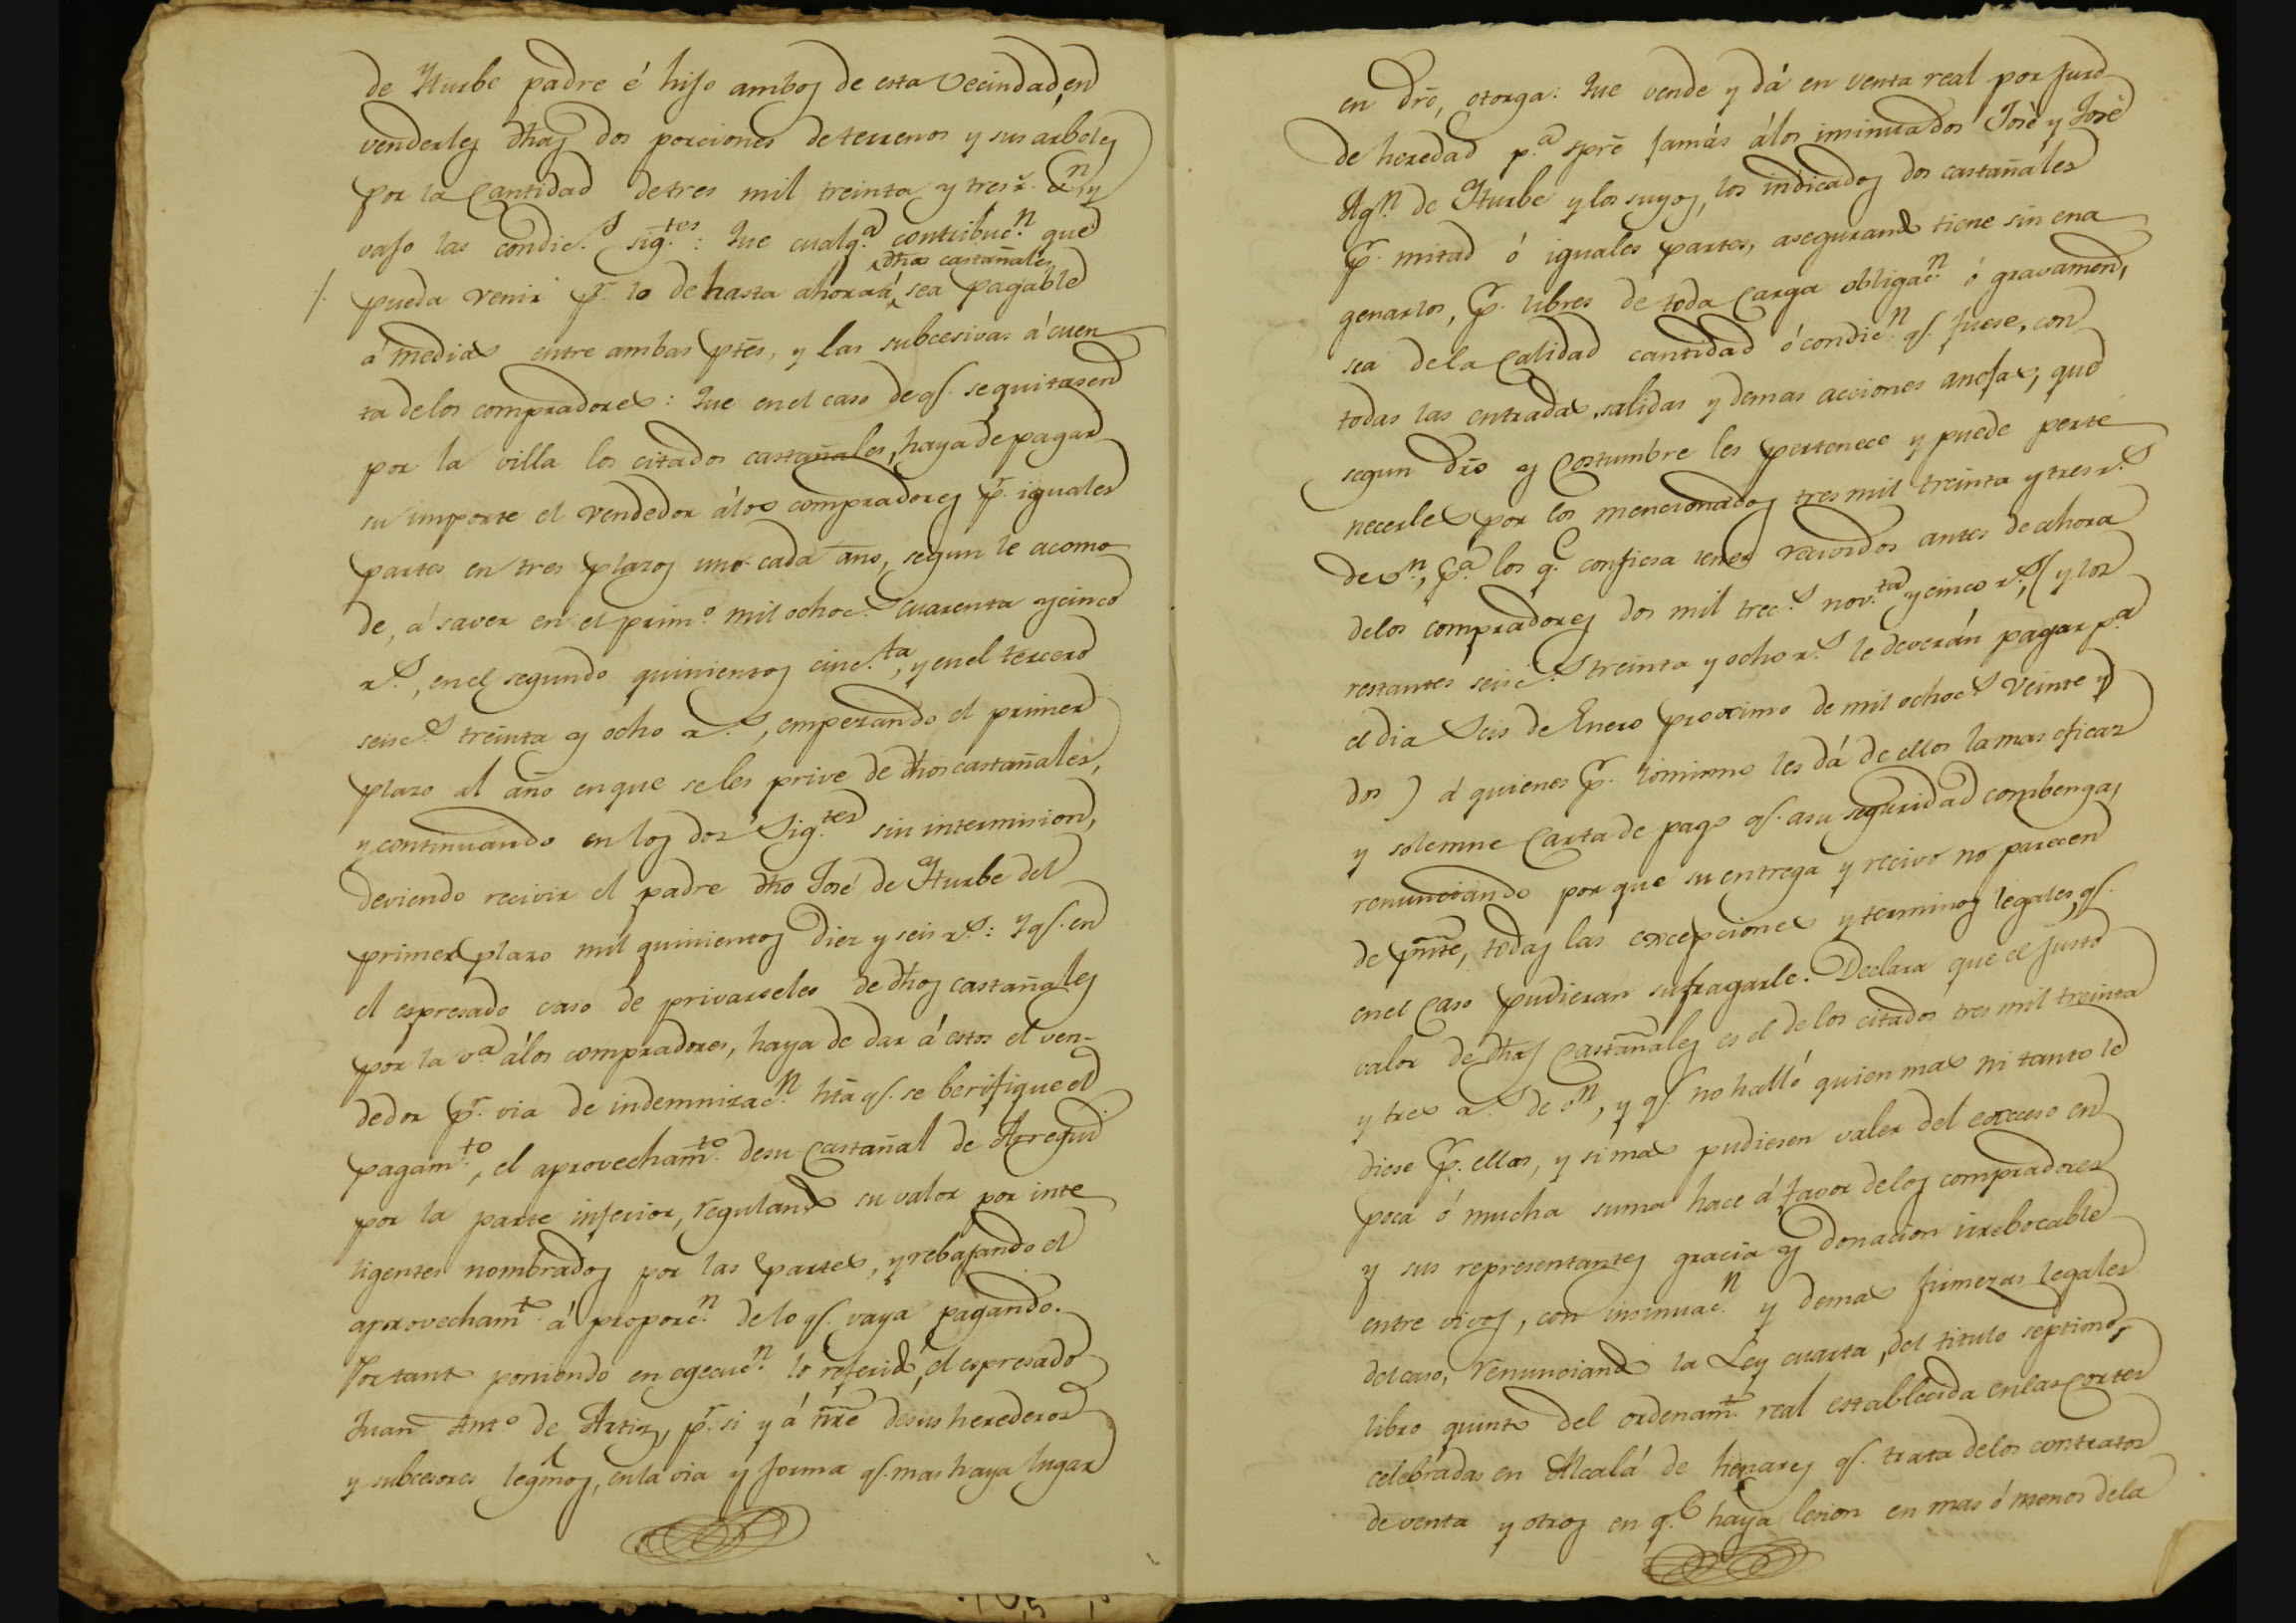 de Yturbe padre é hijo ambos de esta Vecindad, en
venderles dhas dos porciones de terrenos y sus arboles
por la Cantidad de tres mil treinta y tres r.s v.n, y
vajo las condic.s sig.tes: Que cualq.a contribuc.n que
dhos castañales
/. pueda venir p.r lo de hasta ahora á sea pagable
á medias entre ambas ptes, y las subcesivas á cuen
ta de los compradores: Que en el caso de q.e se quitasen
por la villa los citados castañales, haya de pagar
su importe el vendedor álos compradores p.r iguales
partes en tres plazos uno cada año, segun le acomo
de, á saver en el prim.o mil ochoc.s cuarenta y cinco
r.s, en el segundo quinientos cinc.ta, y en el tercero
seisc.s treinta y ocho r.s, empezando el primer
plazo al año en que se les prive de dhos castañales,
y continuando en los dos sig.tes sin intermision,
deviendo recivir el padre dho José de Yturbe del
primer plazo mil quinientos diez y seis r.s: Y q.e en
el espresado caso de privarseles de dhos castañales
por la v.a álos compradores, haya de dar á estos el ven-
dedor p.r via de indemnizac.n hta q.e se berifique el
pagam.to, el aprovecham.to de su Castañal de Arregui
por la parte inferior, regulando su valor por inte
ligentes nombrados por las partes, y rebajando el
aprovecham.to á proporc.n de lo q.e vaya pagando.
Por tanto poniendo en egecuc.n lo referido, el espresado
Juan Ant.o de Artiz, p.r si y á nre de sus herederos
y subcesores legmos, en la via y forma q.e mas haya lugar
en dro, otorga: Que vende y dá en venta real por juro
de heredad p.a spre jamás álos insinuados José y José
Ag.n de Yturbe y los suyos, los indicados dos castañales
p.r mitad ó iguales partes, asegurando tiene sin ena
genarlos, p.r libres de toda Carga obligac.n ó gravamen,
sea de la Calidad cantidad ó condic.n q.e fuese, con
todas las entradas, salidas y demas acciones anejas, que
segun dro y Costumbre les pertenece y puede perte
necerles por los mencionados tres mil treinta y tres r.s
de v.n, p.a los q.e confiesa tener recividos antes de ahora
de los compradores dos mil trec.s nov.ta y cinco r.s, (y los
restantes seisc.s treinta y ocho r.s le deverán pagar p.a
el dia Seis de Enero proximo de mil ochoc.s Veinte y
dos) á quienes p.r lo mismo les dá de ellos la mas eficaz
y solemne Carta de pago q.e a su seguridad combenga,
renunciando por que su entrega y recivo no parecen
de pnte, todas las excepciones y terminos legales, q.e
en el Caso pudieran sufragarle. Declara que el justo
valor de dhos Castañales es el de los citados tres mil treinta
y tres r.s de v.n, y q.e no halló quien mas ni tanto le
diese p.r ellos, y si mas pudiesen valer del exceso en
poca ó mucha suma hace á favor de los compradores
y sus representantes gracia y donacion irrebocable
entre vivos, con insinuac.n y demas firmezas legales
del caso, renunciando la Ley cuarta, del titulo septimo,
libro quinto del ordenam.to real establecida en las cortes
celebradas en Alcalá de henares q.e trata de los contratos
de venta y otros en q.e haya lesion en mas ó menos de la